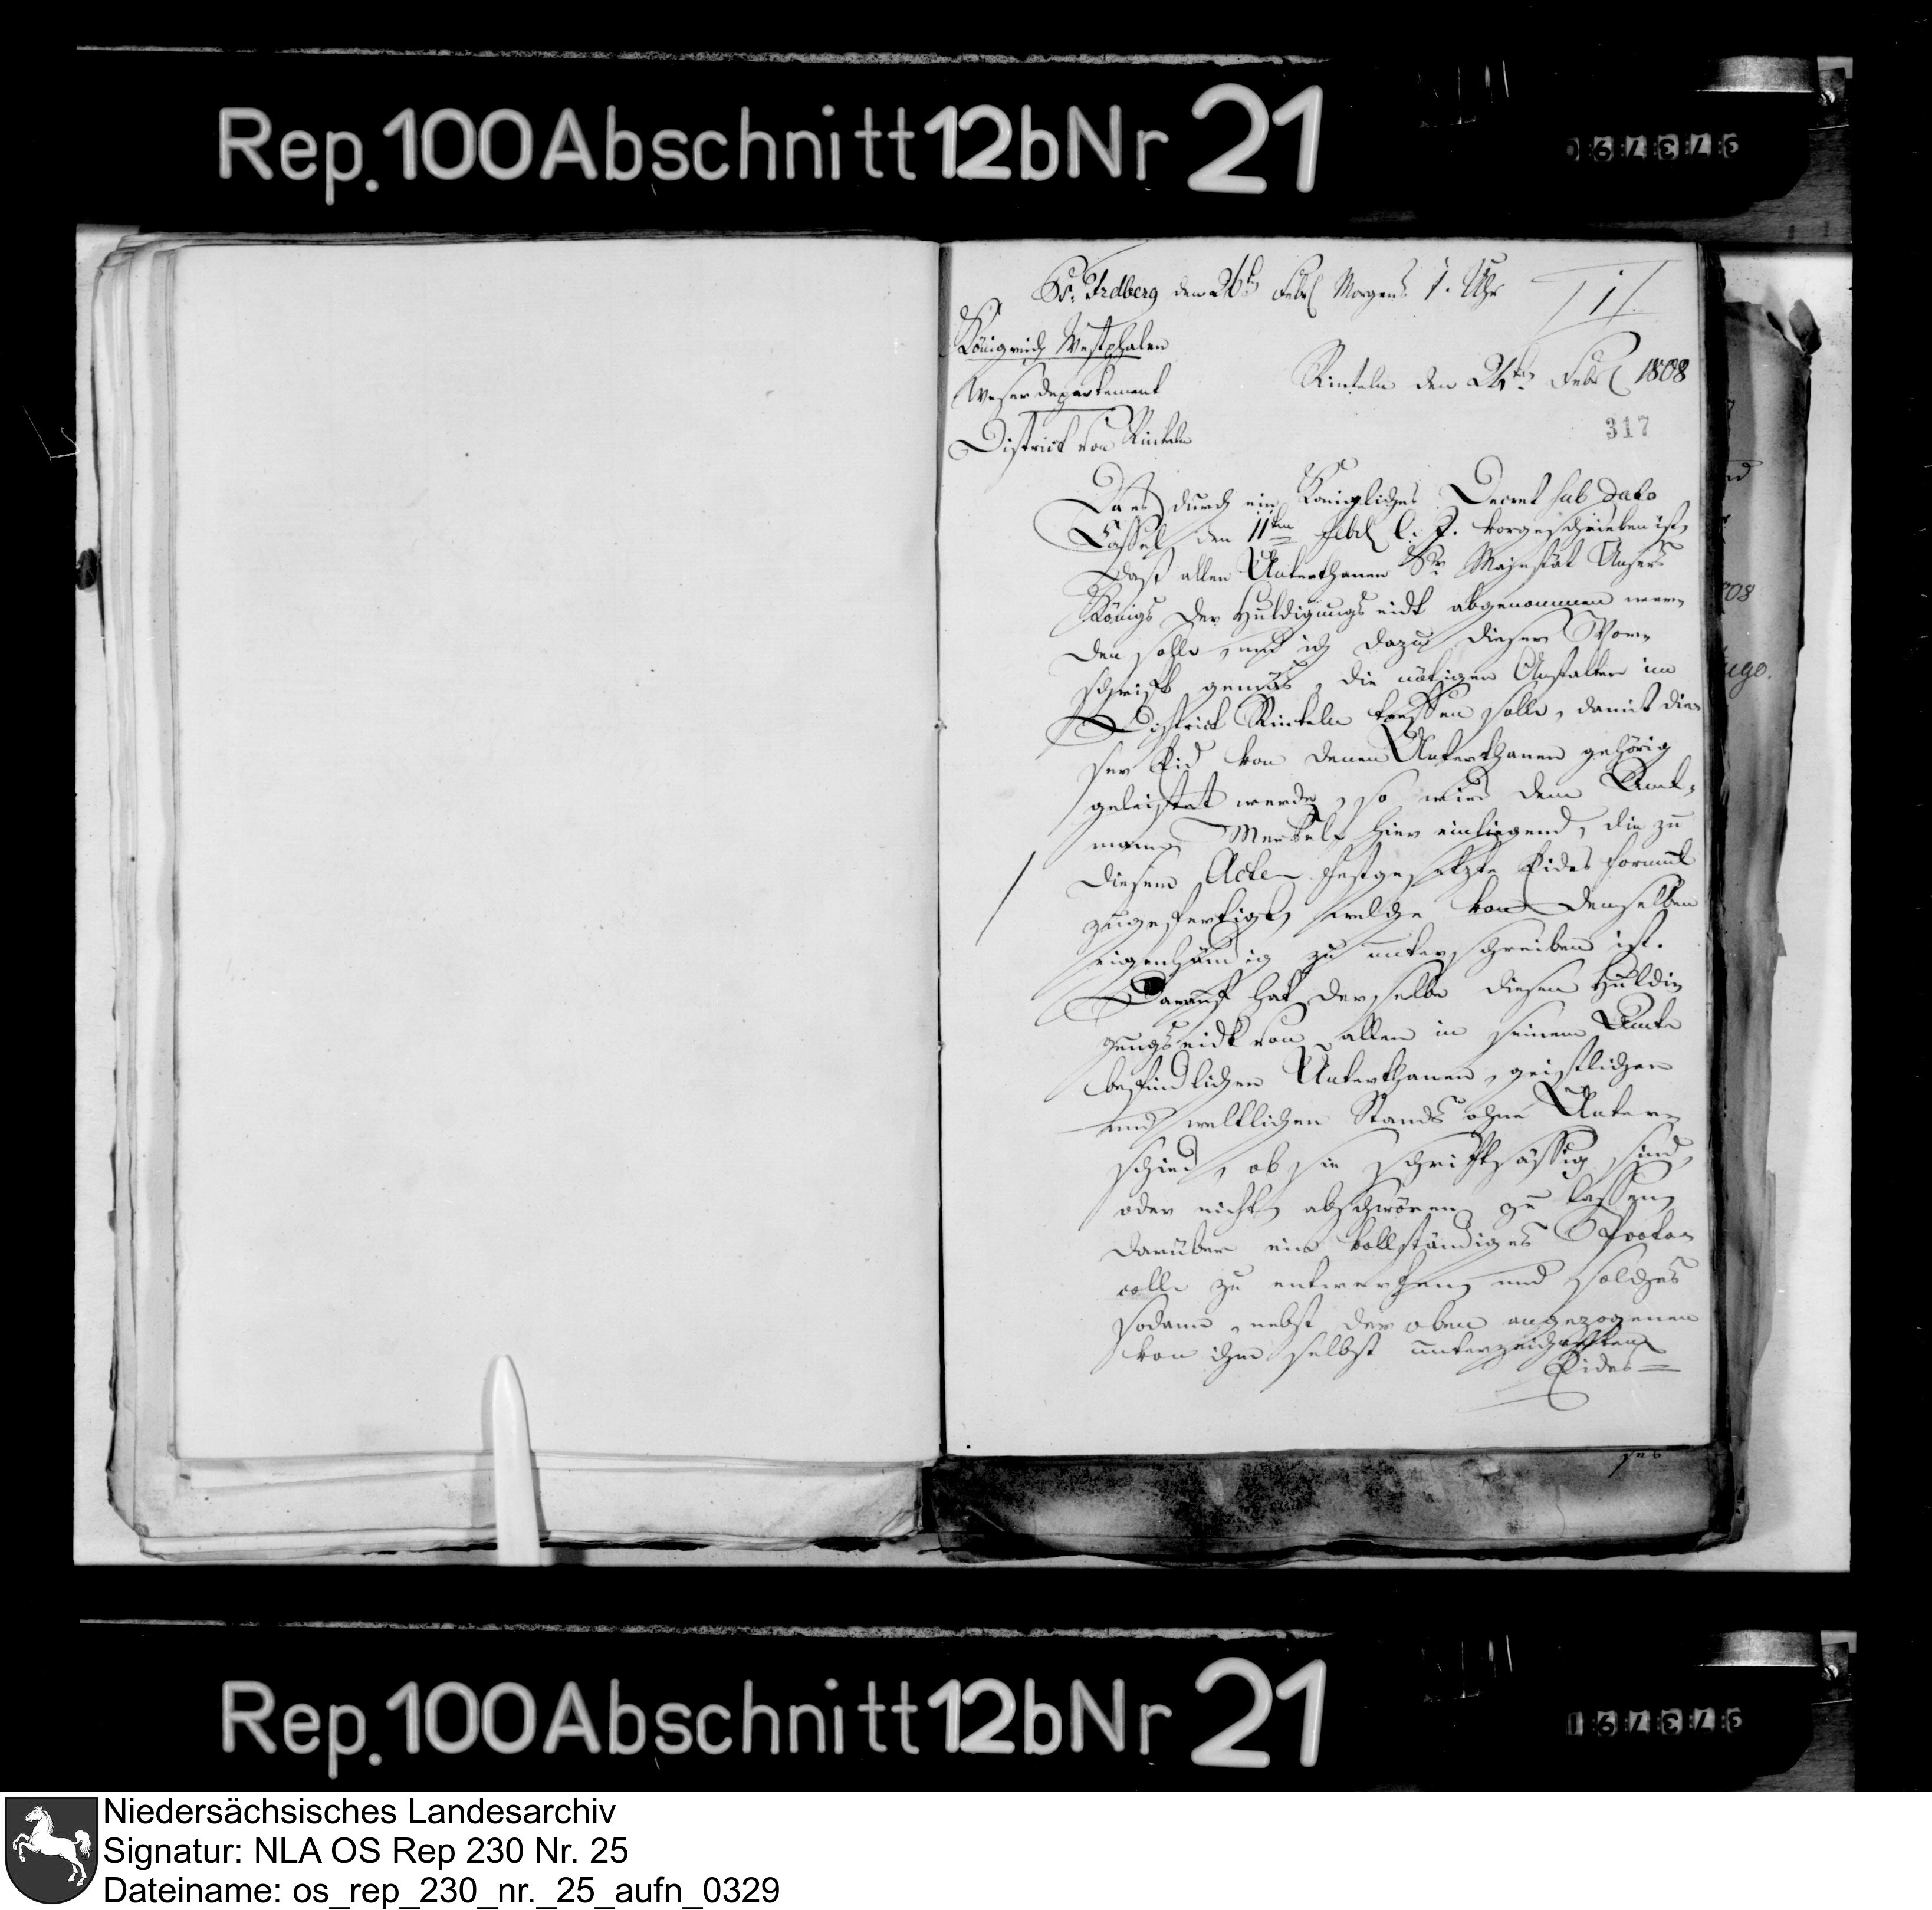 Rep. 100 Abschnitt 12b Nr 21
Pr. Frdberg den 26t Febr Morgens 1. Uhr
1
Königreich Westphalen
Weserdepartement
District von Rinteln
Rinteln den 24ten Febr 1808
317
Da es durch ein Königliches Decret sub dato
Cassel den 11ten Febr l. J. vorgeschrieben ist,
daß allen Unterthanen Sr Majestät Unsers
Königs der Huldigungs eidt abgenommen wer-
den solle, und ich dazu dieser Vor-
schrift gemäs, die nötigen Anstalten im
District Rinteln treffen solle, damit die-
ser Eid von denen Unterthanen gehörig
geleistet werde, so wird dem Amt-
mann hier einliegend, die zu
diesem Acte festgesetzte Eides formul
zugefertigt, welche von demselben
eigenhändig zu unterschreiben ist.
Darauf hat derselbe diesen Huldi-
gungseidt von allen in seinem Amte
befindlichen Unterthanen, geistlichen
und weltlichen Stands ohne Unter-
schied, ob sie schriftsässig sind,
oder nicht, abschwören zu lassen,
darüber ein vollständiges Proto-
colle zu entwerfen, und solches
sodann, nebst der oben angezogenen
von ihm selbst unterzeichneten
Eides-
Rep. 100 Abschnitt 12b Nr 21
Niedersächsisches Landesarchiv
Signatur: NLA OS Rep 230 Nr. 25
Dateiname: os_rep_230_nr._25_aufn_0329